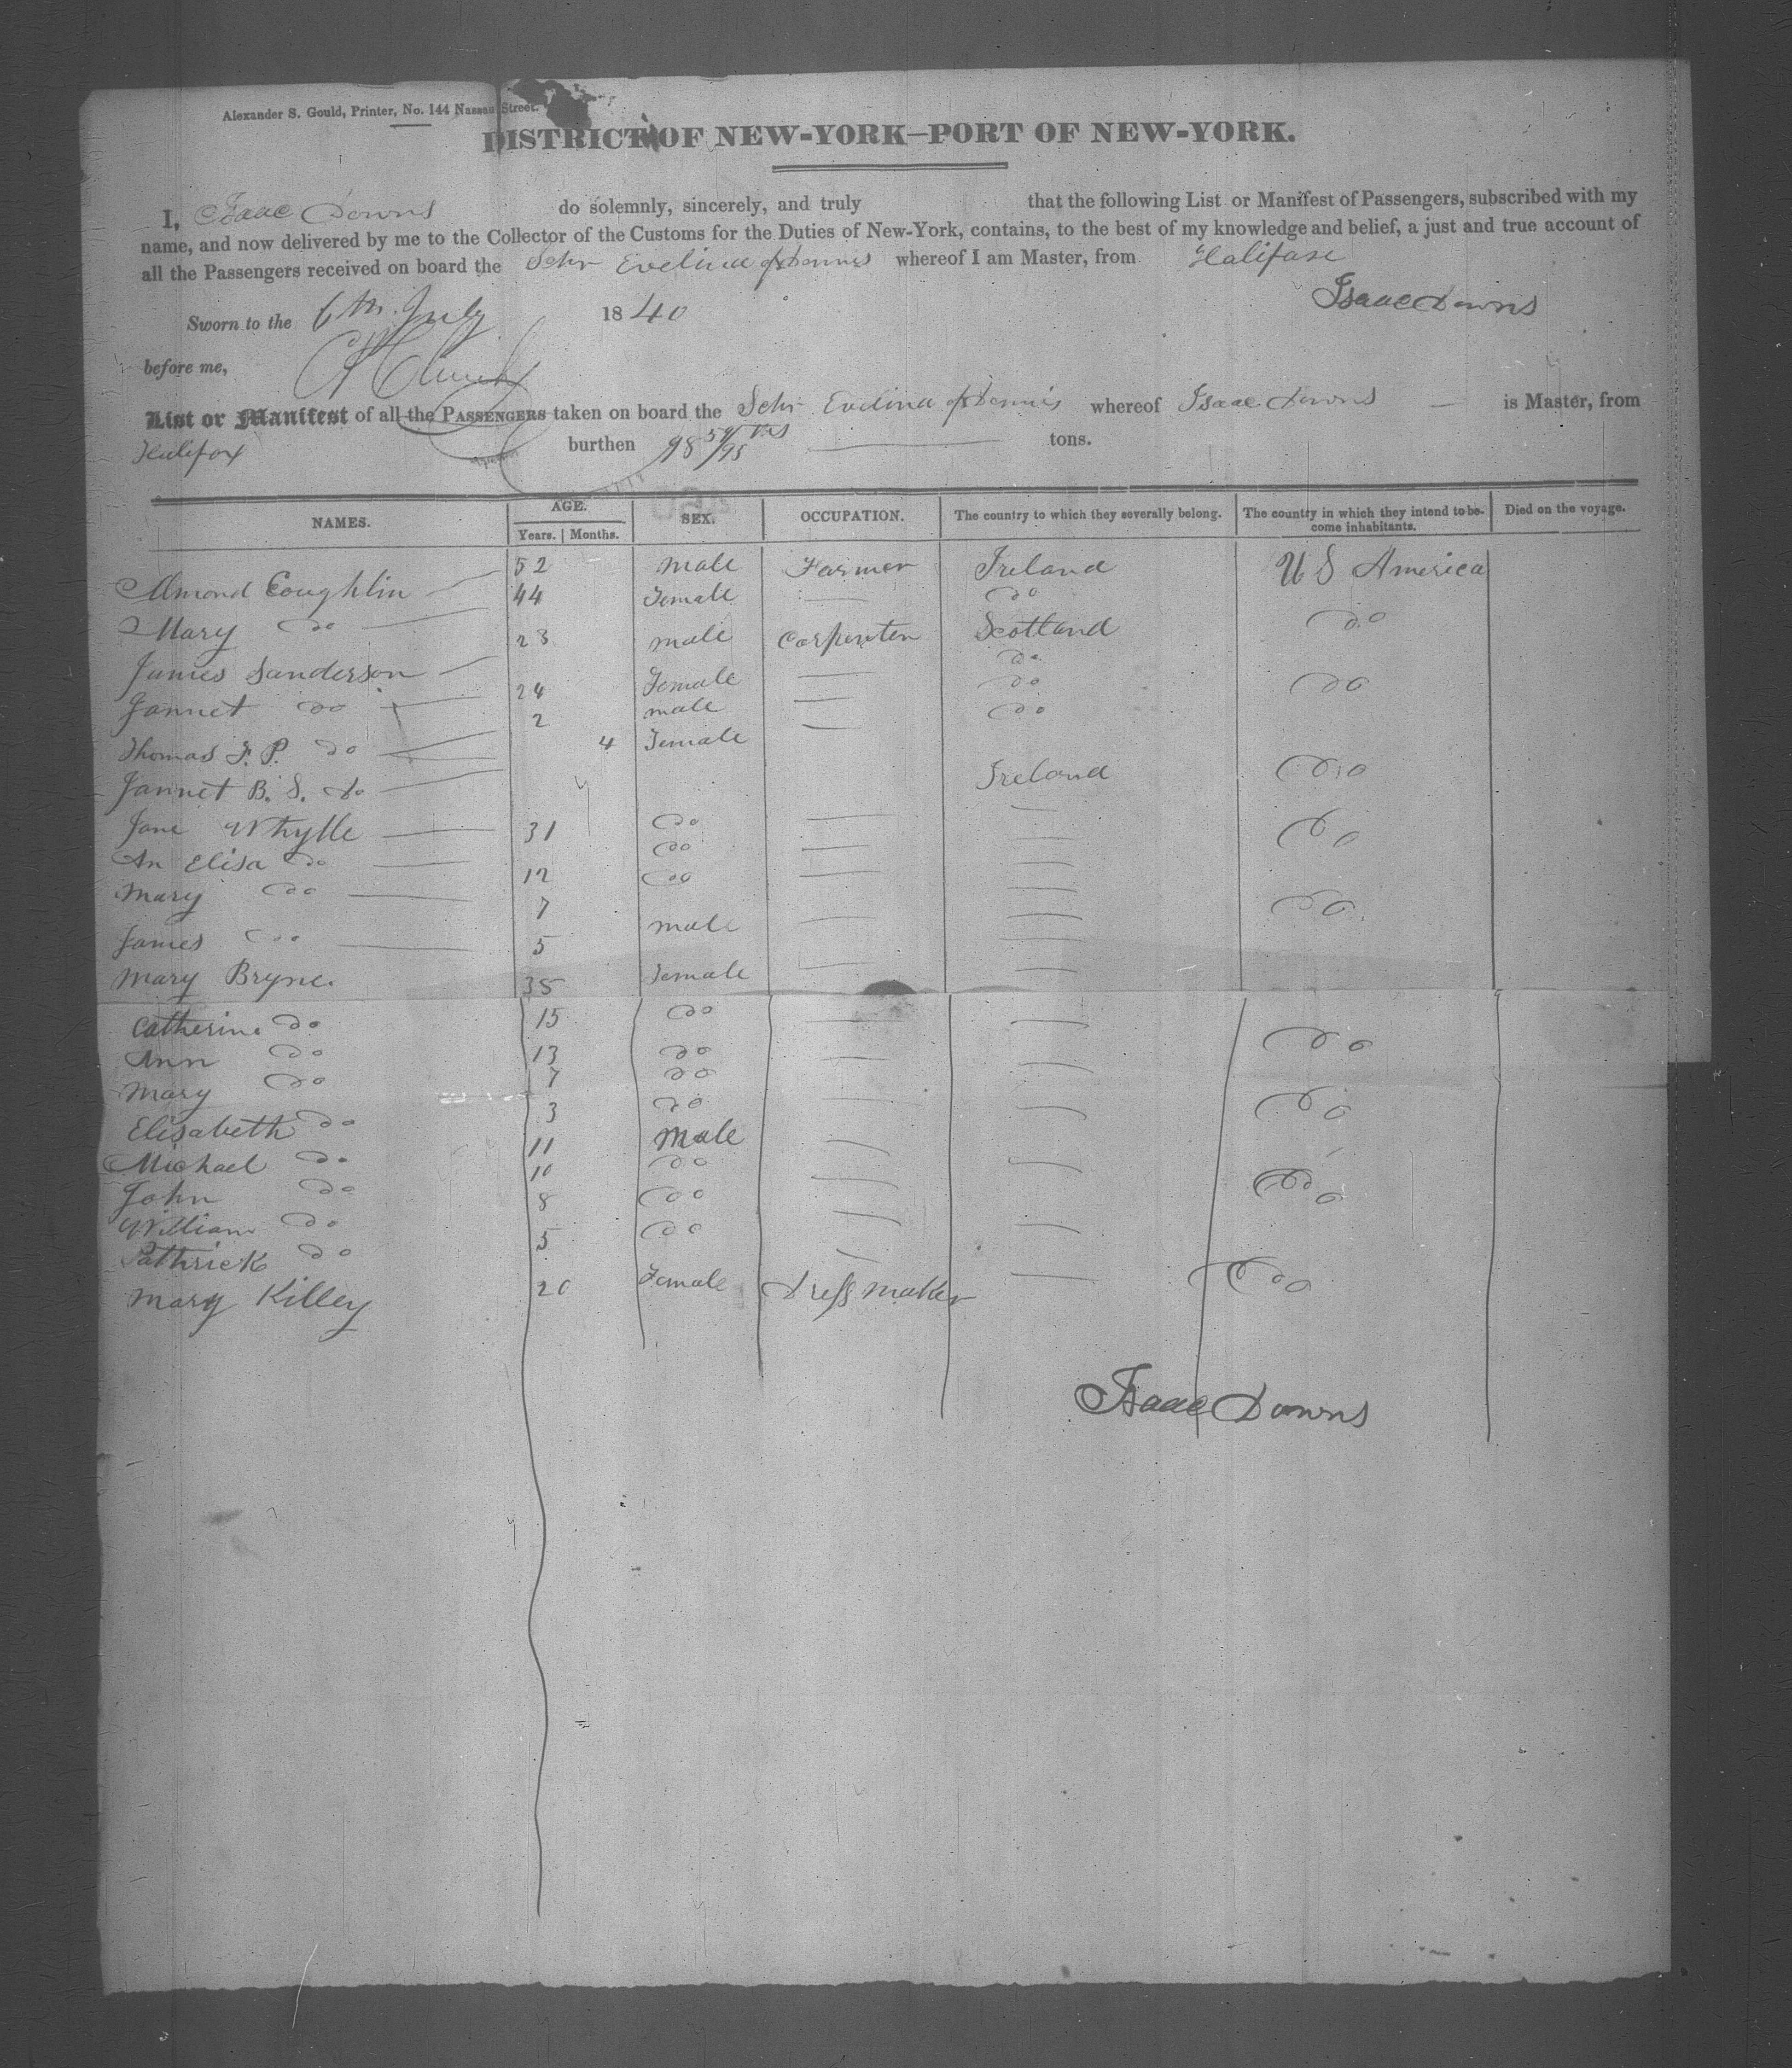 Alexander S. Gould, Printer, No. 144 Nassau Street.
DISTRICT OF NEW-YORK—PORT OF NEW-YORK.
I, Isaac Downs do solemnly, sincerely, and truly that the following List or Manifest of Passengers, subscribed with my
name, and now delivered by me to the Collector of the Customs for the Duties of New-York, contains, to the best of my knowledge and belief, a just and true account of
all the Passengers received on board the Schr Evelina of Dennis whereof I am Master, from Halifax
Isaac Downs
Sworn to the 6th July 1840
before me,
List or Manifest of all the PASSENGERS taken on board the Schr Evelina of Dennis whereof Isaac Downs — is Master, from
Halifax burthen 98 tons.
NAMES. AGE. Years. Months. SEX. OCCUPATION. The country to which they severally belong. The country in which they intend to be- come inhabitants. Died on the voyage.
Almond Coughlin 52 male Farmer Ireland U S America
Mary do 44 Female — do do
James Sanderson 23 male Carpenter Scotland
Jannet do 24 Female — do do
Thomas F. P. do 2 male — do
Jannet B. S. do 4 Female — do
Jane Whytle 31 do — Ireland do
An Elisa do 12 do — — do
Mary do 7 do — —
James do 5 male — — do
Mary Bryne. 35 Female — —
Catherine do 15 do — —
Ann do 13 do — — do
Mary do 7 do — —
Elisabeth do 3 do — — do
Michael do 11 Male — —
John do 10 do — — do
William do 8 do — —
Pathrick do 5 do — —
Mary Killey 20 Female Dress maker — do
Isaac Downs